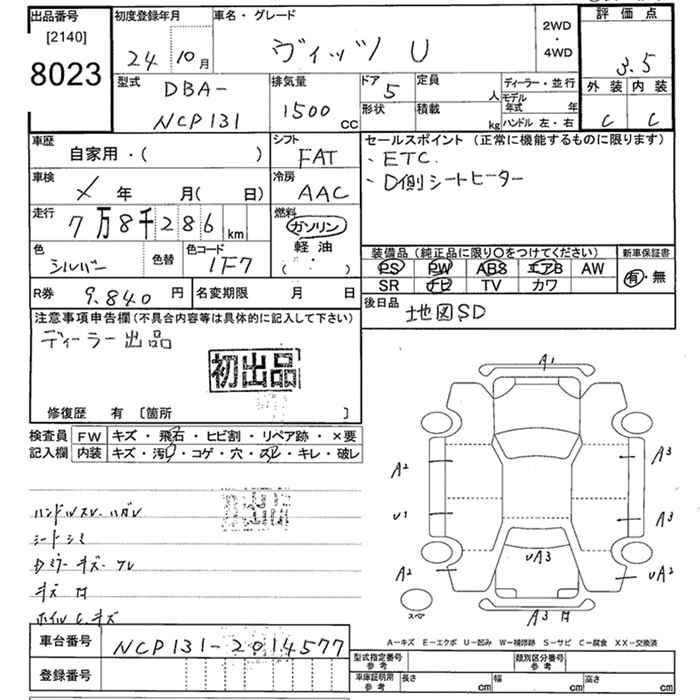 出品番号
[2140]
8023
初度登録年月
24 年 10 月
車名・グレード
ヴィッツ U
2WD
・
4WD
評価点
3.5
外装 内装
C C
型式
DBA-
NCP131
排気量
1500 CC
ドア 5
形状
定員 人
積載 kg
ディーラー・並行
モデル年式 年
ハンドル 左・右
車歴
自家用・( )
シフト
FAT
セールスポイント (正常に機能するものに限ります)
、ETC.
、D側シートヒーター
車検
X 年 月( 日)
冷房
AAC
走行
7万8千286 km
燃料
ガソリン
軽油
( ・ )
色
シルバー
色替
色コード
1F7
装備品 (純正品に限り○をつけてください)
PS PW ABS エアB AW
SR ナビ TV カワ
新車保証書
有・無
R券 9,840 円
名変期限 月 日
後日品
地図SD
注意事項申告欄 (不具合内容等は具体的に記入して下さい)
ディーラー出品
初出品
修復歴 有 〔箇所 〕
検査員 FW キズ・飛石・ヒビ割・リペア跡・×要
記入欄 内装 キズ・汚レ・コゲ・穴・スレ・キレ・破レ
ハンドルスレ・ハガレ
シートシミ
Dミラーキズ・スレ
キズ 有
ホイルCキズ
A1
A2
A3
U1
A3
UA3
A2
UA2
スペア
A3 有
A-キズ E-エクボ U-凹み W-補修跡 S-サビ C-腐食 XX-交換済
車台番号
NCP131-2014577
登録番号
型式指定番号 参考
類別区分番号 参考
車庫証明用 参考
長さ cm
幅 cm
高さ cm